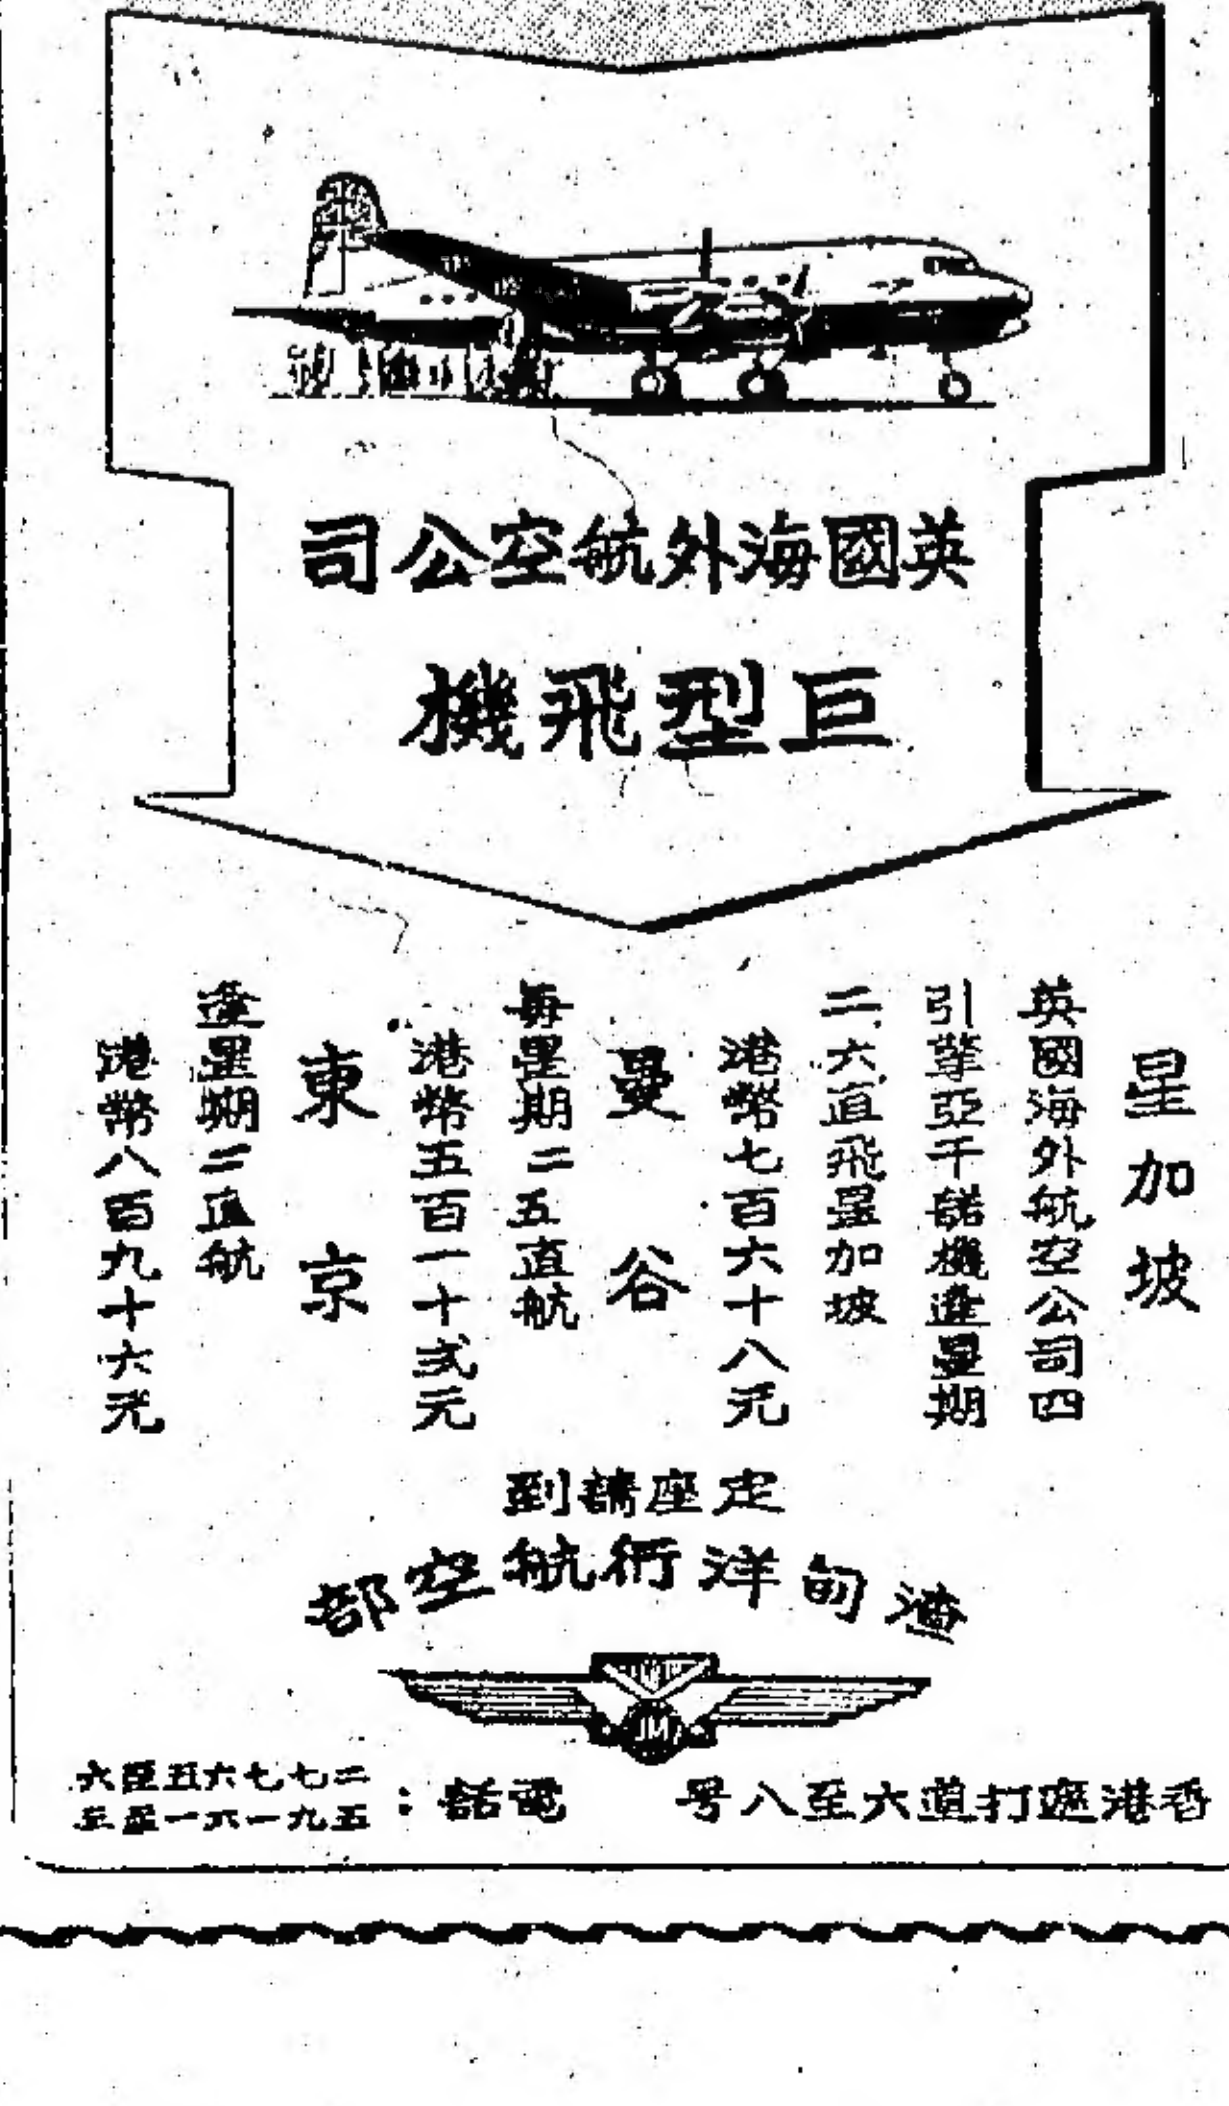 英國海外航空公司
巨型飛機
星加坡
英國海外航空公司四
引擎亞干諾機逢星期
二六直飛星加坡
港幣七百六十八元
曼谷
每星期二五直航
港幣五百一十弍元
東京
逢星期二直航
港幣八百九十六元
定座請到
渣甸洋行航空部
JM
香港遮打道六至八号
電話：
二七七六五至六
五九一六一至五